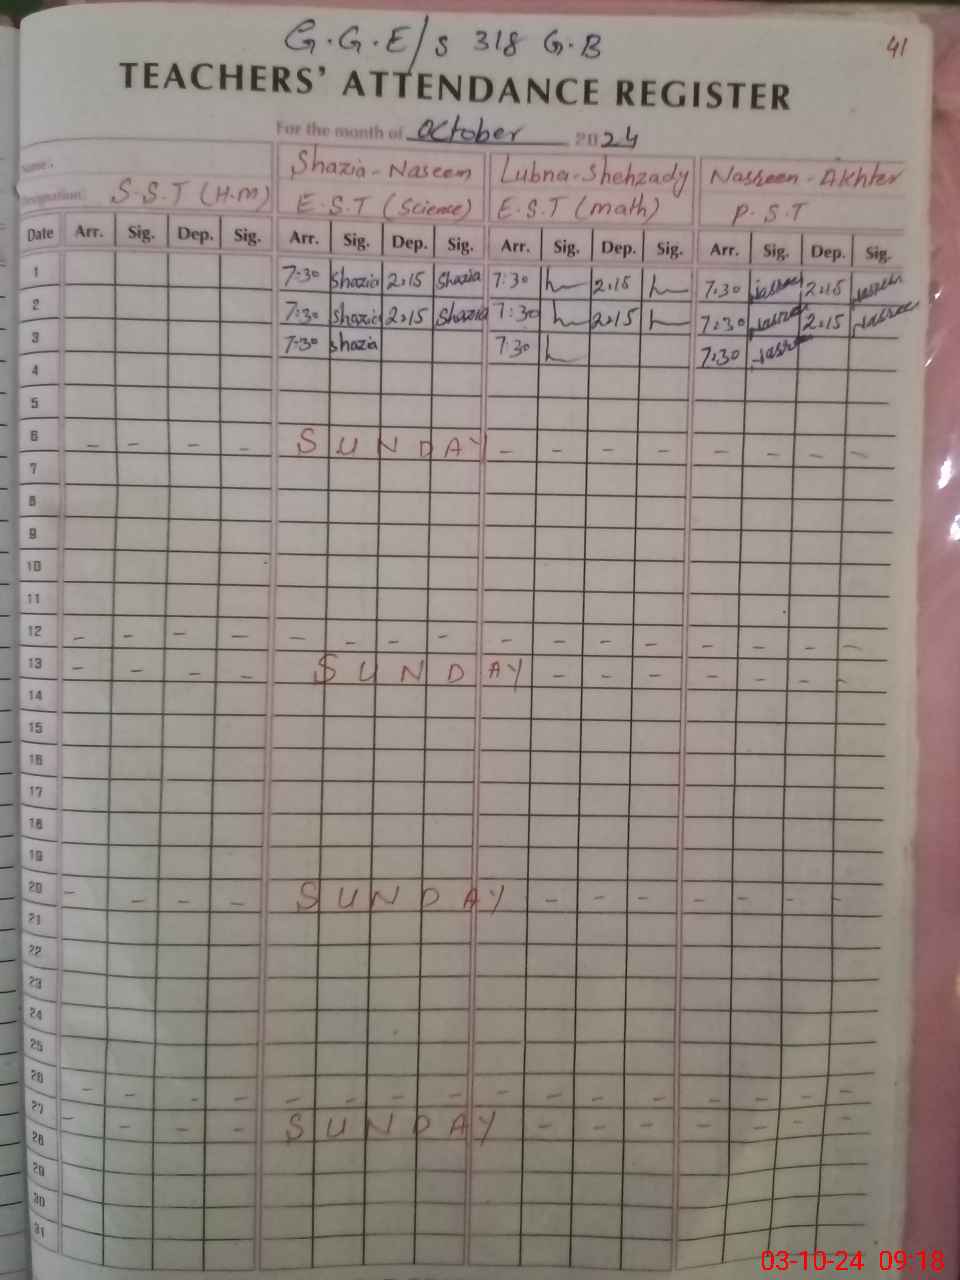 41
G.G.E/s 318 G.B
TEACHERS' ATTENDANCE REGISTER
For the month of October 2024
Name: Shazia-Naseem Lubna-Shehzady Nasreen-Akhter
Designation: S.S.T (H.M) E.S.T (Science) E.S.T (math) P.S.T
Date Arr. Sig. Dep. Sig. Arr. Sig. Dep. Sig. Arr. Sig. Dep. Sig. Arr. Sig. Dep. Sig.
1 7:30 Shazia 2:15 Shazia 7:30 2:15 7:30 2:15
2 7:30 Shazia 2:15 Shazia 7:30 2:15 7:30 2:15
3 7:30 Shazia 7:30 7:30
4
5
6 - - - - SUNDAY - - - - - - - -
7
8
9
10
11
12 - - - - - - - - - - - - - - - -
13 - - - - SUNDAY - - - - - - -
14
15
16
17
18
19
20 - - - - SUNDAY - - - - - - -
21
22
23
24
25
26 - - - - - - - - - - - - - - - -
27 - - - - SUNDAY - - - - - - -
28
29
30
31
03-10-24 09:18